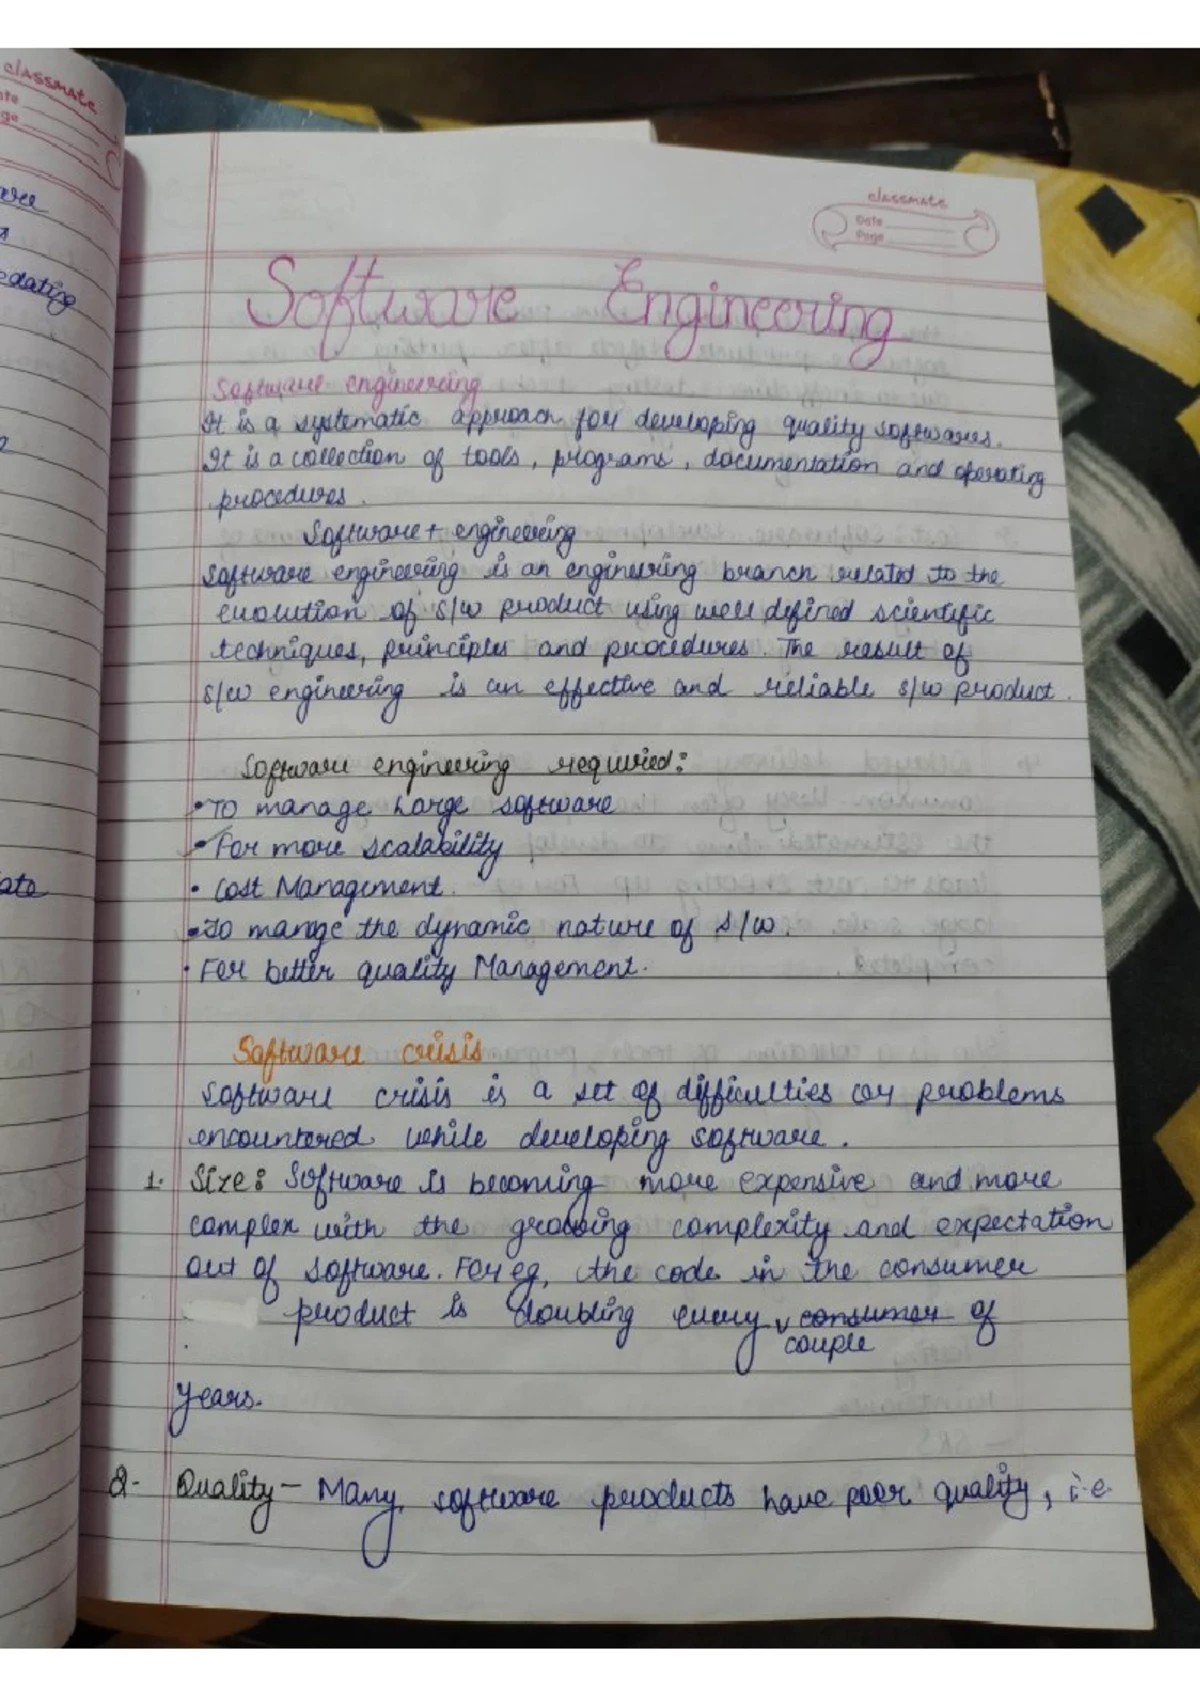 classmate
Date
Page
Software Engineering
Software engineering
It is a systematic approach for developing quality softwares.
It is a collection of tools, programs, documentation and operating
procedures.
Software + engineering
Software engineering is an engineering branch related to the
evolution of s/w product using well defined scientific
techniques, principles and procedures. The result of
s/w engineering is an effective and reliable s/w product.
Software engineering required:
• To manage Large software
• For more scalability
• Cost Management.
• To mange the dynamic nature of s/w.
• For better quality Management.
Software crisis
Software crisis is a set of difficulties or problems
encountered while developing software.
1. Size: Software is becoming more expensive and more
complex with the growing complexity and expectation
out of software. For eg, the code in the consumer
product is doubling every consumer of
couple
years.
2- Quality - Many software products have poor quality, i.e
classmate
ate
ge
edating
ate